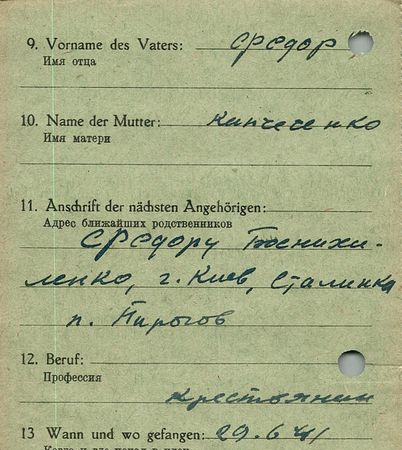 9. Vorname des Vaters: Федор
Имя отца
10. Name der Mutter: Кинчеченко
Имя матери
11. Anschrift der nächsten Angehörigen:
Адрес ближайших родственников
Федору
ленко, г. Киев, Сталинка
п. Пирогов
12. Beruf:
Профессия
крестьянин
13 Wann und wo gefangen: 29.6 41